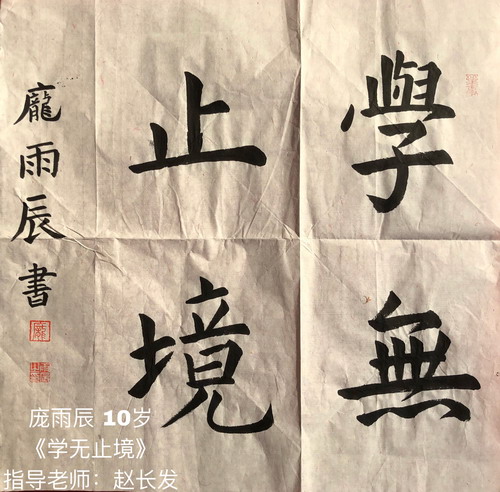 學無
止境
龐雨辰書
庞雨辰 10岁
《学无止境》
指导老师：赵长发